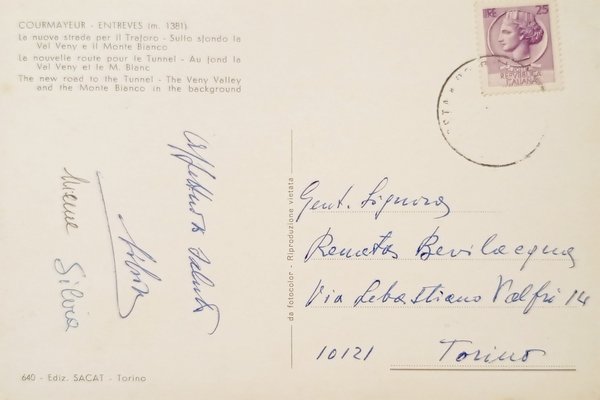 COURMAYEUR - ENTREVES (m. 1381)
La nuova strada per il Traforo - Sullo sfondo la
Val Veny e il Monte Bianco
La nouvelle route pour le Tunnel - Au fond la
Val Veny et le M. Blanc
The new road to the Tunnel - The Veny Valley
and the Monte Bianco in the background
LIRE 25
REPUBBLICA
ITALIANA
Affettuosi saluti
Silvia
da fotocolor - Riproduzione vietata
Gent. Signora
Renata Bevilacqua
Via Sebastiano Valfrè 14
10121 Torino
640 - Ediz. SACAT - Torino